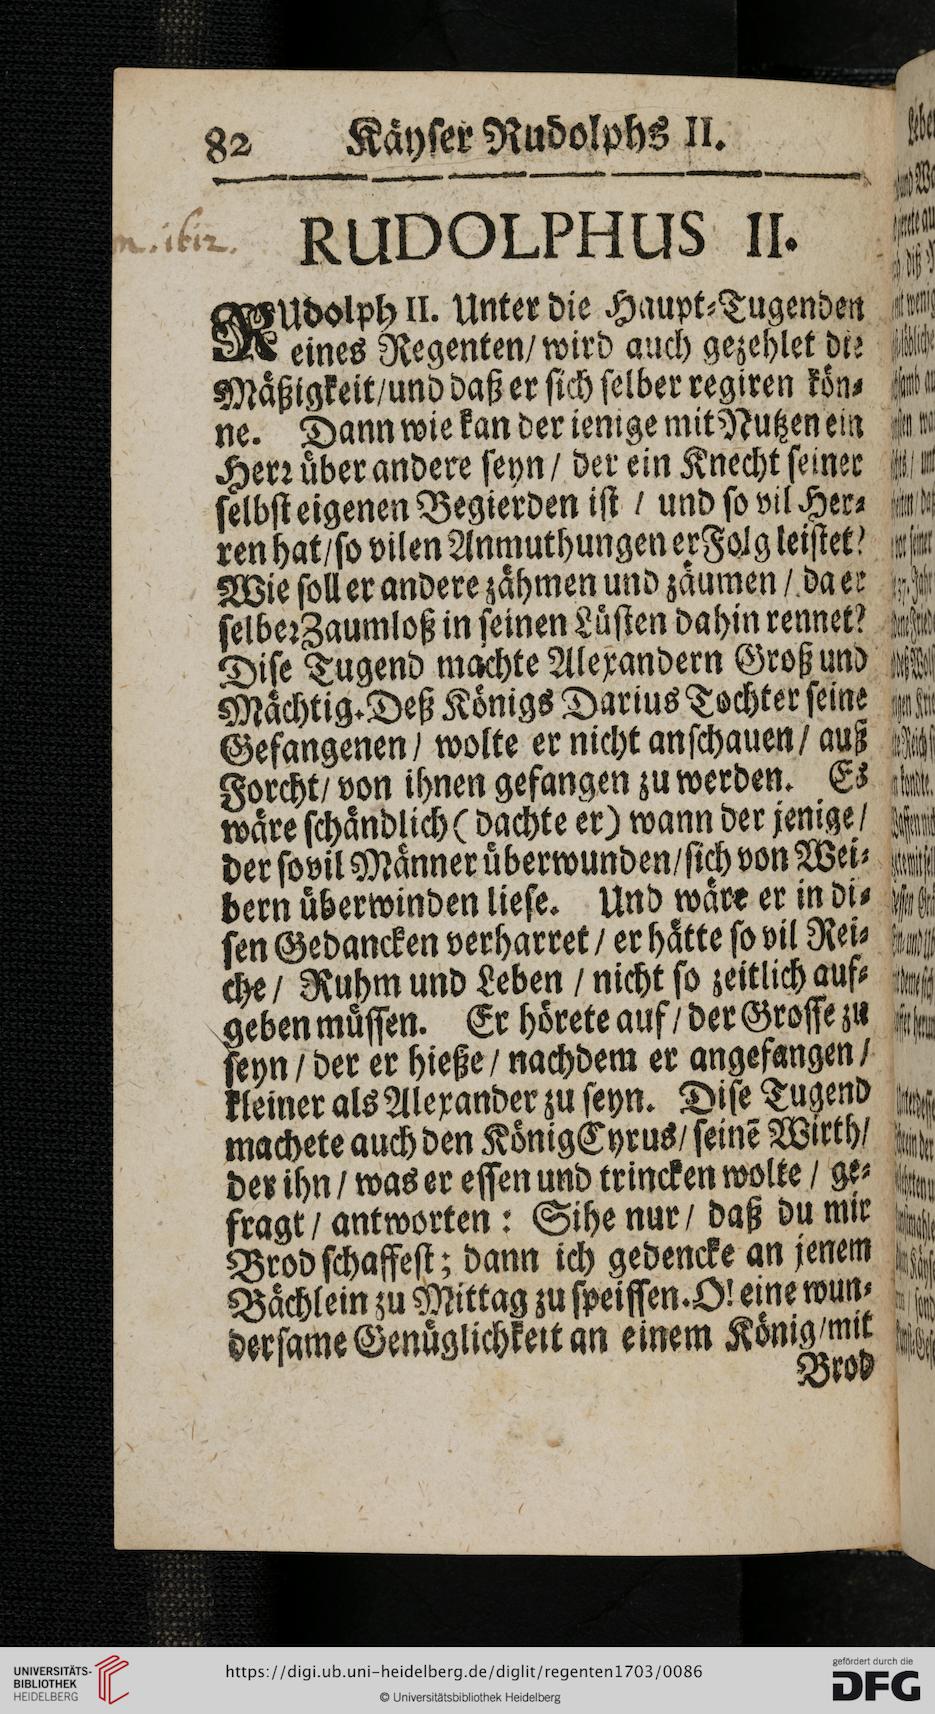 82 Käyser Rudolphs II.
m. 1612.
RUDOLPHUS II.
RUdolph II. Unter die Haupt-Tugenden
eines Regenten/ wird auch gezehlet die
Mäßigkeit/und daß er sich selber regiren kön-
ne. Dann wie kan der ienige mit Nutzen ein
Herr über andere seyn / der ein Knecht seiner
selbst eigenen Begierden ist / und so vil Her-
ren hat/so vilen Anmuthungen er Folg leistet?
Wie soll er andere zähmen und zäumen / da er
selber Zaumloß in seinen Lüsten dahin rennet?
Dise Tugend machte Alexandern Groß und
Mächtig. Deß Königs Darius Tochter seine
Gefangenen / wolte er nicht anschauen / auß
Forcht/ von ihnen gefangen zu werden. Es
wäre schändlich ( dachte er ) wann der jenige /
der so vil Männer überwunden/sich von Wei-
bern überwinden liese. Und wäre er in di-
sen Gedancken verharret / er hätte so vil Rei-
che / Ruhm und Leben / nicht so zeitlich auf-
geben müssen. Er hörete auf / der Grosse zu
seyn / der er hieße / nachdem er angefangen /
kleiner als Alexander zu seyn. Dise Tugend
machete auch den König Cyrus/ seinē Wirth/
der ihn / was er essen und trincken wolte / ge-
fragt / antworten : Sihe nur / daß du mir
Brod schaffest ; dann ich gedencke an jenem
Bächlein zu Mittag zu speissen. O! eine wun-
dersame Genüglichkeit an einem König/mit
Brod
UNIVERSITÄTS-
BIBLIOTHEK
HEIDELBERG
https://digi.ub.uni-heidelberg.de/diglit/regenten1703/0086
© Universitätsbibliothek Heidelberg
gefördert durch die
DFG